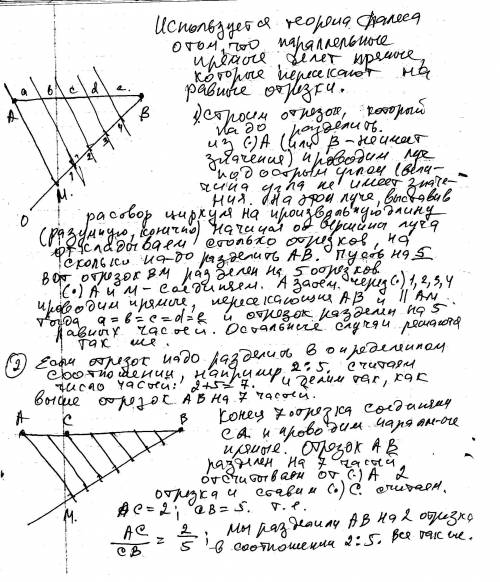 Используется теорема Фалеса
о том, что параллельные
прямые делят прямые,
которые пересекают на
равные отрезки.
a b c d e
A B
1 2 3 4
M
O
1) Строим отрезок, который
надо разделить.
из (·) A (или B - не имеет
значение) проводим луч
под острым углом (вели-
чина угла не имеет значе-
ния. На этом луче, выставив
раствор циркуля на произвольную длину
(разумную, конечно) начиная от вершины луча
откладываем столько отрезков, на
сколько надо разделить AB. Пусть на 5
Вот отрезок BM разделен на 5 отрезков
(·) A и M - соединяем. А затем через (·) 1, 2, 3, 4
проводим прямые, пересекающие AB и || AM.
Тогда a = b = c = d = e и отрезок разделен на 5
равных частей. Остальные случаи решаются
так же.
2) Если отрезок надо разделить в определенном
соотношении, например 2:5. считаем
число частей: 2+5=7. и делим так, как
выше отрезок AB на 7 частей.
A C B
M
Конец 7 отрезка соединяем
с A и проводим паралл-ые
прямые. Отрезок AB
разделен на 7 частей
отсчитываем от (·) A 2
отрезка и ставим (·) C. считаем.
AC = 2; CB = 5. т.е.
AC/CB = 2/5; Мы разделили AB на 2 отрезка
в соотношении 2:5. Все так же.